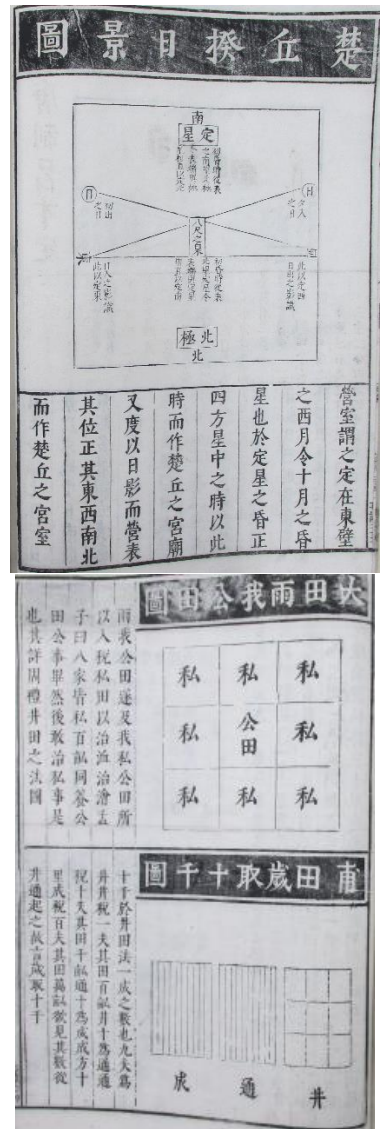 楚丘揆日景圖
南
定星
日
夕入
之日
日
初出
之日
八尺之臬
此以定西
日出之影識
日入之影識
此以定東
北極
北
營室謂之定在東壁
之西月令十月之昏
星也於定星之昏正
四方星中之時以此
時而作楚丘之宮廟
又度以日影而營表
其位正其東西南北
而作楚丘之宮室
大田雨我公田圖
私 私 私
私 公田 私
私 私 私
雨我公田遂及我私公田所
以入稅私田以治洫治澮孟
子曰八家皆私百畝同養公
田公事畢然後敢治私事是
也其詳周禮井田之法圖
甫田歲取十千圖
井 通 成
十千於井田法一成之數也九夫為
井井稅一夫其田百畝井十為通通
稅十夫其田千畝通十為成成方十
里成稅百夫其田萬畝欲見其數從
井通起之故言歲取十千